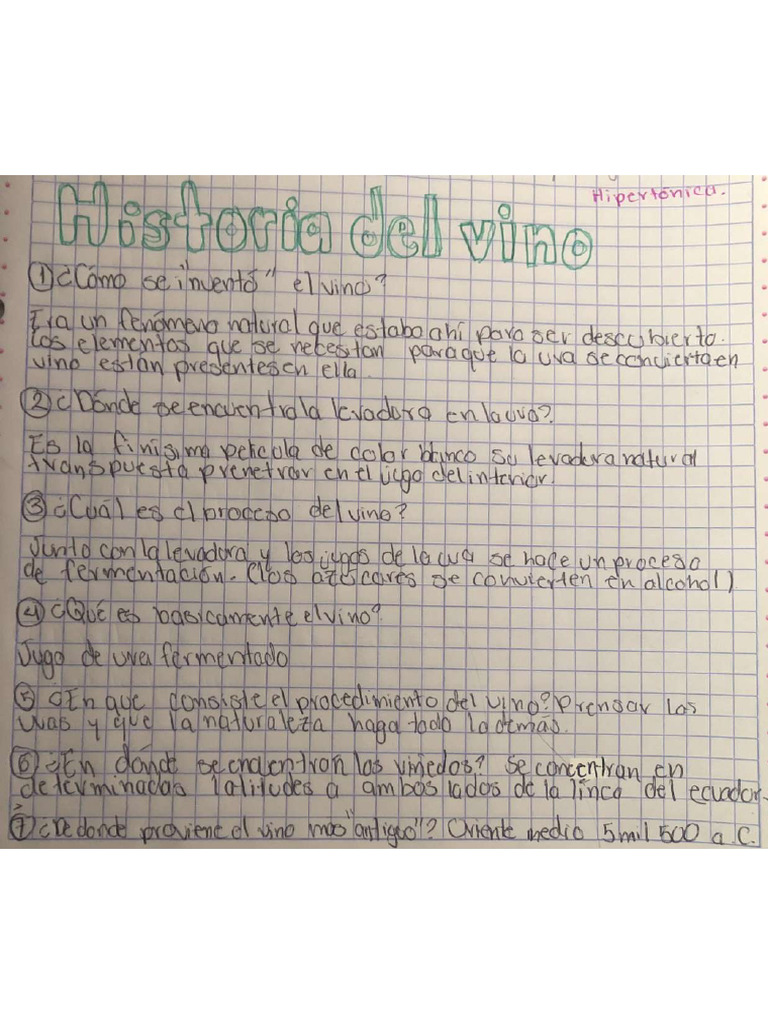 Hipertónica.
Historia del vino
① ¿Cómo se i"nventó" el vino?
Era un fenómeno natural que estaba ahí para ser descubierto.
Los elementos que se necesitan para que la uva se convierta en
vino están presentes en ella.
② ¿Dónde se encuentra la levadura en la uva?
Es la finísima película de color blanco su levadura natural
transpuesta prenetrar en el jugo del interior.
③ ¿Cuál es el proceso del vino?
Junto con la levadora y los jugos de la uva se hace un proceso
de fermentación. (los azúcares se convierten en alcohol)
④ ¿Qué es basicamente el vino?
Jugo de uva fermentado
⑤ ¿En que consiste el procedimiento del vino? Prensar las
uvas y que la naturaleza haga todo lo demás.
⑥ ¿En dónde se encuentran los viñedos? Se concentran en
determinadas latitudes a ambos lados de la línea del ecuador.
⑦ ¿De donde proviene el vino mas "antiguo"? Oriente medio 5mil 500 a.C.